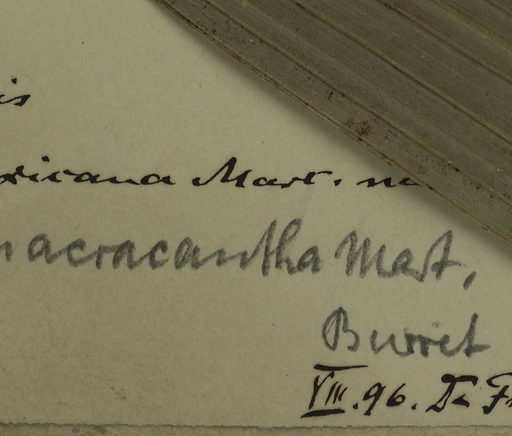 is
ricana Mart. n
macracantha Mart,
Burret
VIII. 96. Dr F